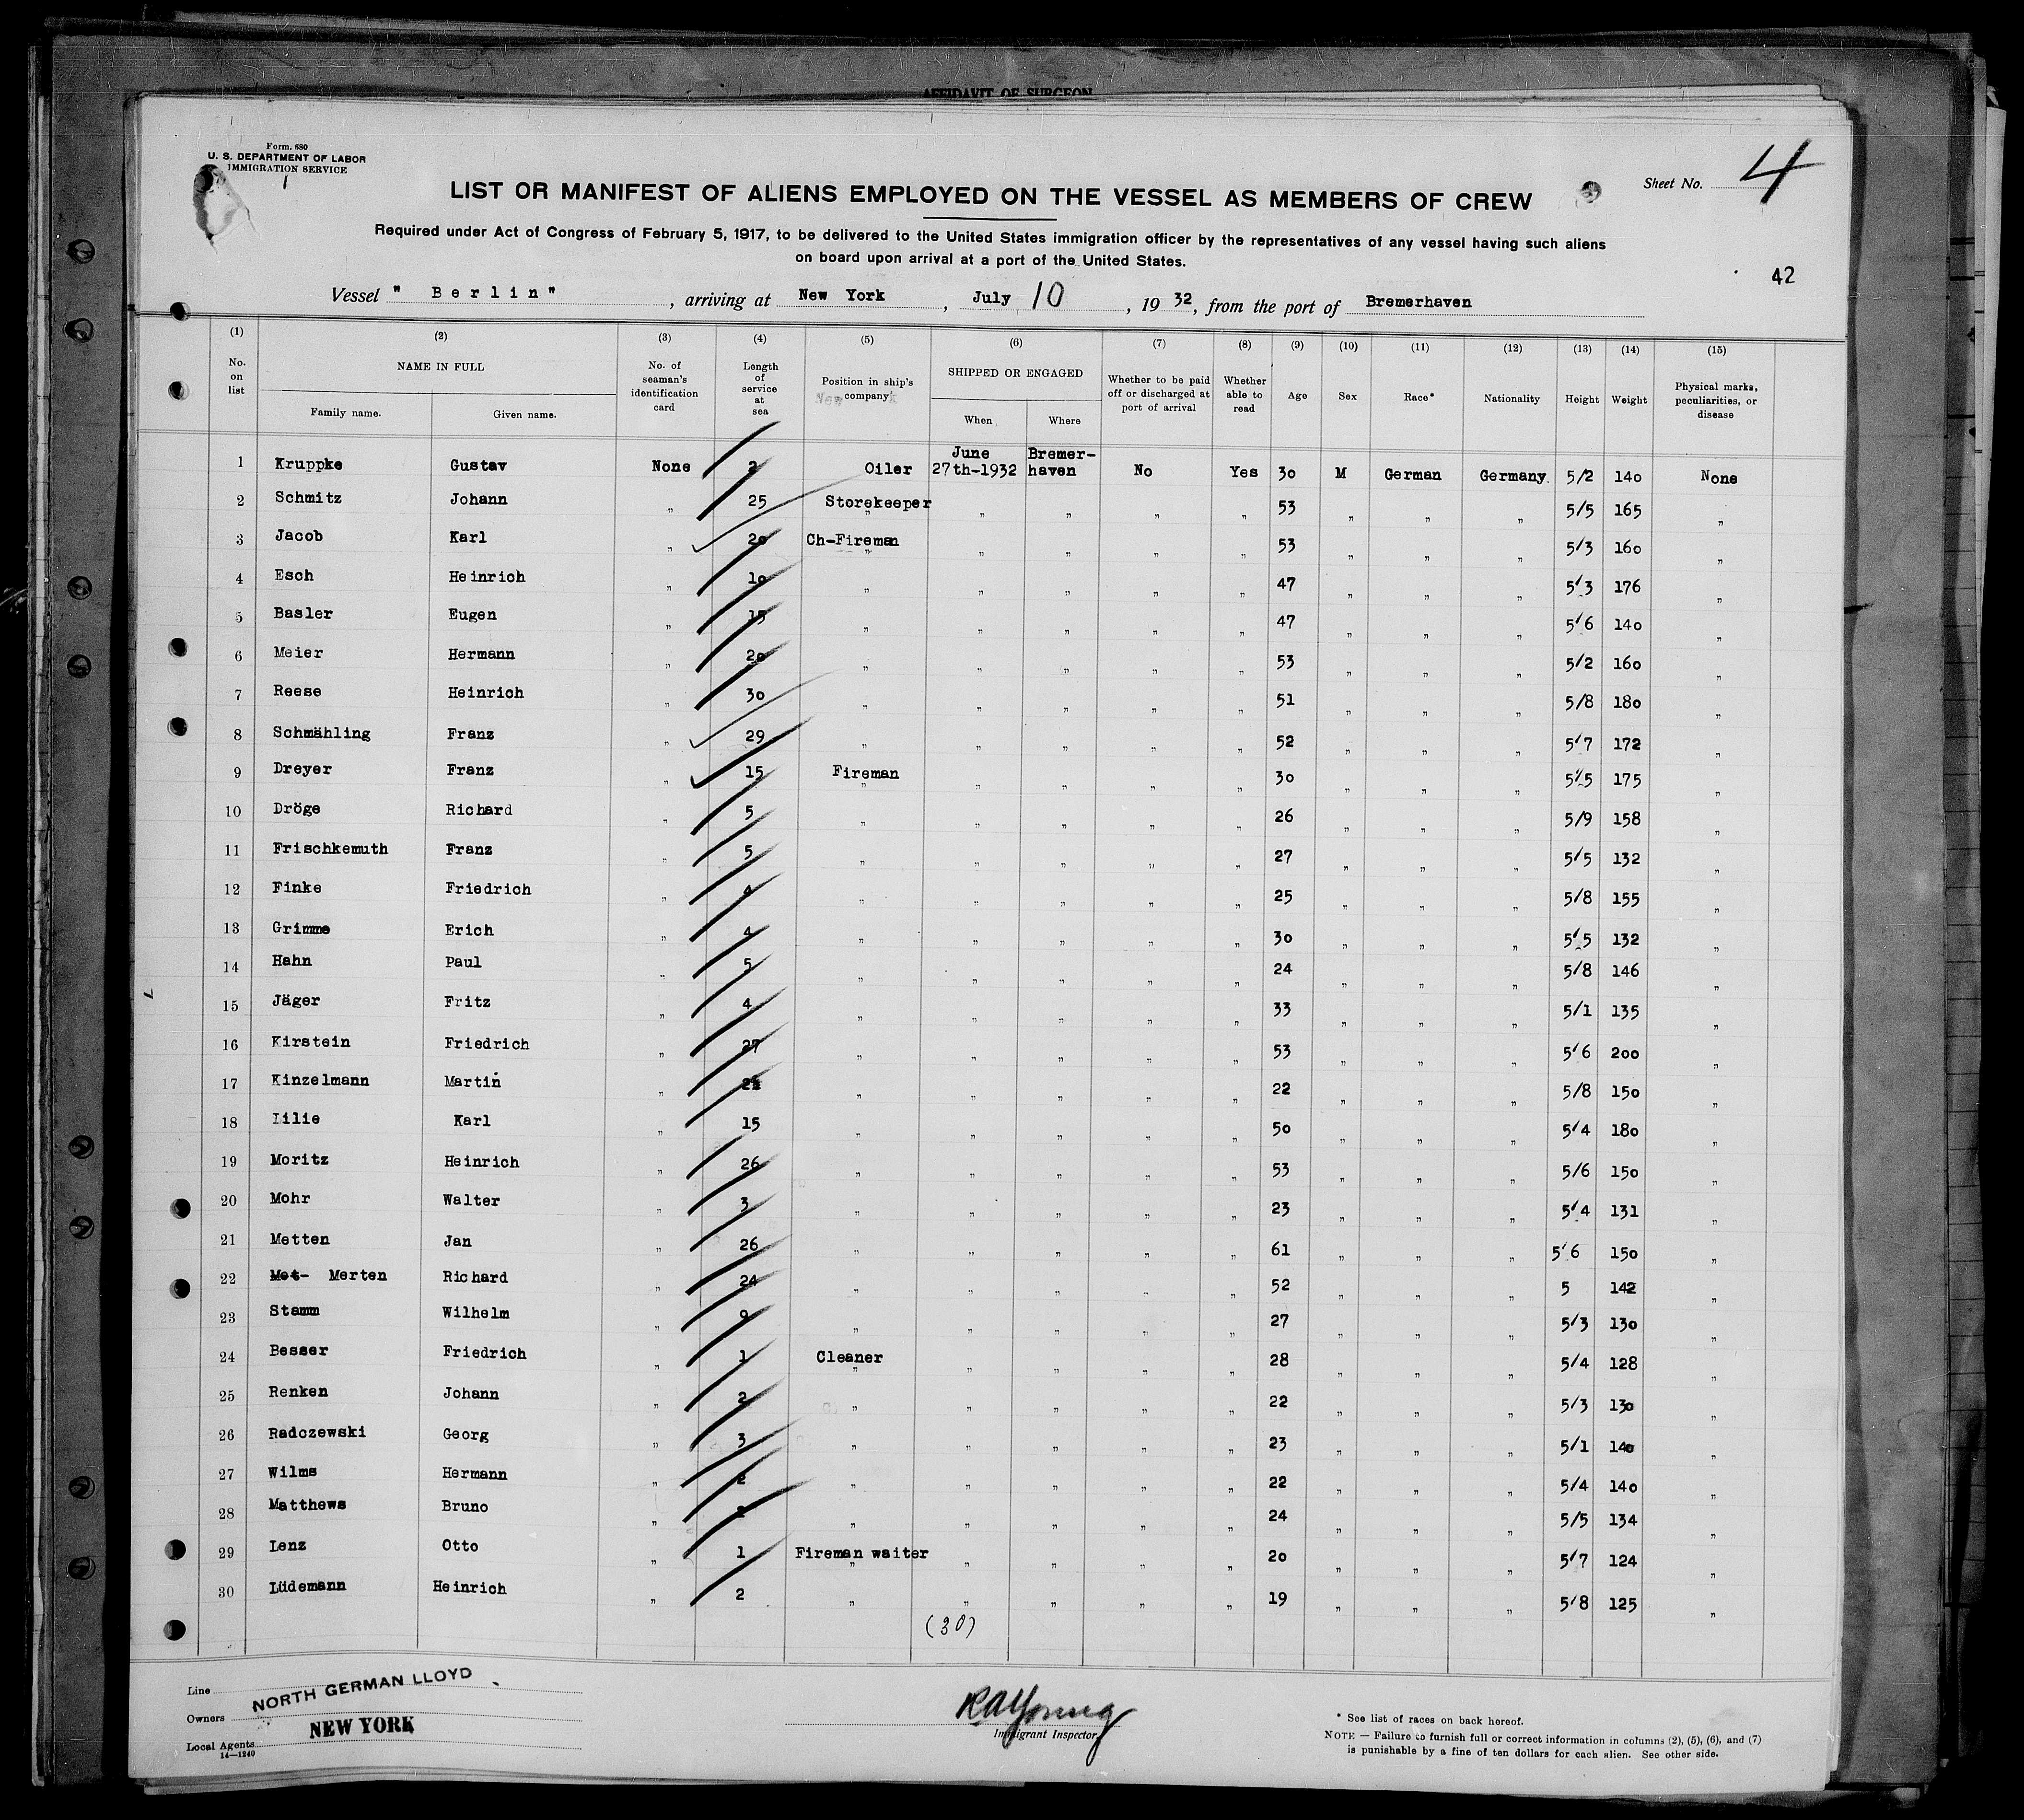 AFFIDAVIT OF SURGEON
Form. 680
U. S. DEPARTMENT OF LABOR
IMMIGRATION SERVICE
Sheet No. 4
LIST OR MANIFEST OF ALIENS EMPLOYED ON THE VESSEL AS MEMBERS OF CREW
Required under Act of Congress of February 5, 1917, to be delivered to the United States immigration officer by the representatives of any vessel having such aliens
on board upon arrival at a port of the United States.
42
Vessel " Berlin" , arriving at New York , July 10 , 19 32, from the port of Bremerhaven
(1) (2) (3) (4) (5) (6) (7) (8) (9) (10) (11) (12) (13) (14) (15)
No. on list NAME IN FULL Family name. Given name. No. of seaman's identification card Length of service at sea Position in ship's company SHIPPED OR ENGAGED When Where Whether to be paid off or discharged at port of arrival Whether able to read Age Sex Race* Nationality Height Weight Physical marks, peculiarities, or disease
1 Kruppke Gustav None 2 Oiler June 27th-1932 Bremer-haven No Yes 30 M German Germany 5/2 140 None
2 Schmitz Johann " 25 Storekeeper " " " " 53 " " " 5/5 165 "
3 Jacob Karl " 20 Ch-Fireman " " " " 53 " " " 5/3 160 "
4 Esch Heinrich " 10 " " " " " 47 " " " 5/3 176 "
5 Basler Eugen " 15 " " " " " 47 " " " 5/6 140 "
6 Meier Hermann " 20 " " " " " 53 " " " 5/2 160 "
7 Reese Heinrich " 30 " " " " " 51 " " " 5/8 180 "
8 Schmähling Franz " 29 " " " " " 52 " " " 5/7 172 "
9 Dreyer Franz " 15 Fireman " " " " 30 " " " 5/5 175 "
10 Dröge Richard " 5 " " " " " 26 " " " 5/9 158 "
11 Frischkemuth Franz " 5 " " " " " 27 " " " 5/5 132 "
12 Finke Friedrich " 4 " " " " " 25 " " " 5/8 155 "
13 Grimme Erich " 4 " " " " " 30 " " " 5/5 132 "
14 Hahn Paul " 5 " " " " " 24 " " " 5/8 146 "
15 Jäger Fritz " 4 " " " " " 33 " " " 5/1 135 "
16 Kirstein Friedrich " 27 " " " " " 53 " " " 5/6 200 "
17 Kinzelmann Martin " " " " " " 22 " " " 5/8 150 "
18 Lilie Karl " 15 " " " " " 50 " " " 5/4 180 "
19 Moritz Heinrich " 26 " " " " " 53 " " " 5/6 150 "
20 Mohr Walter " 3 " " " " " 23 " " " 5/4 131 "
21 Metten Jan " 26 " " " " " 61 " " " 5/6 150 "
22 Met- Merten Richard " 24 " " " " " 52 " " " 5 142 "
23 Stamm Wilhelm " 9 " " " " " 27 " " " 5/3 130 "
24 Besser Friedrich " 1 Cleaner " " " " 28 " " " 5/4 128 "
25 Renken Johann " 2 " " " " " 22 " " " 5/3 130 "
26 Radczewski Georg " 3 " " " " " 23 " " " 5/1 140 "
27 Wilms Hermann " 2 " " " " " 22 " " " 5/4 140 "
28 Matthews Bruno " " " " " " 24 " " " 5/5 134 "
29 Lenz Otto " 1 Fireman waiter " " " " 20 " " " 5/7 124 "
30 Lüdemann Heinrich " 2 " " " " " 19 " " " 5/8 125 "
(30)
Line NORTH GERMAN LLOYD
Owners
NEW YORK
Local Agents
14—1240
R A Young
Immigrant Inspector.
* See list of races on back hereof.
NOTE — Failure to furnish full or correct information in columns (2), (5), (6), and (7)
is punishable by a fine of ten dollars for each alien. See other side.